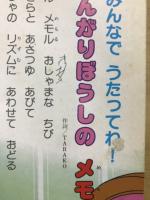 みんなで うたってね！
んがりぼうしの メモ
作詞／TARAKO
ル メモル おじゃまな ちび
きらと あさつゆ あびて
ちゃの リズムに あわせて おどる